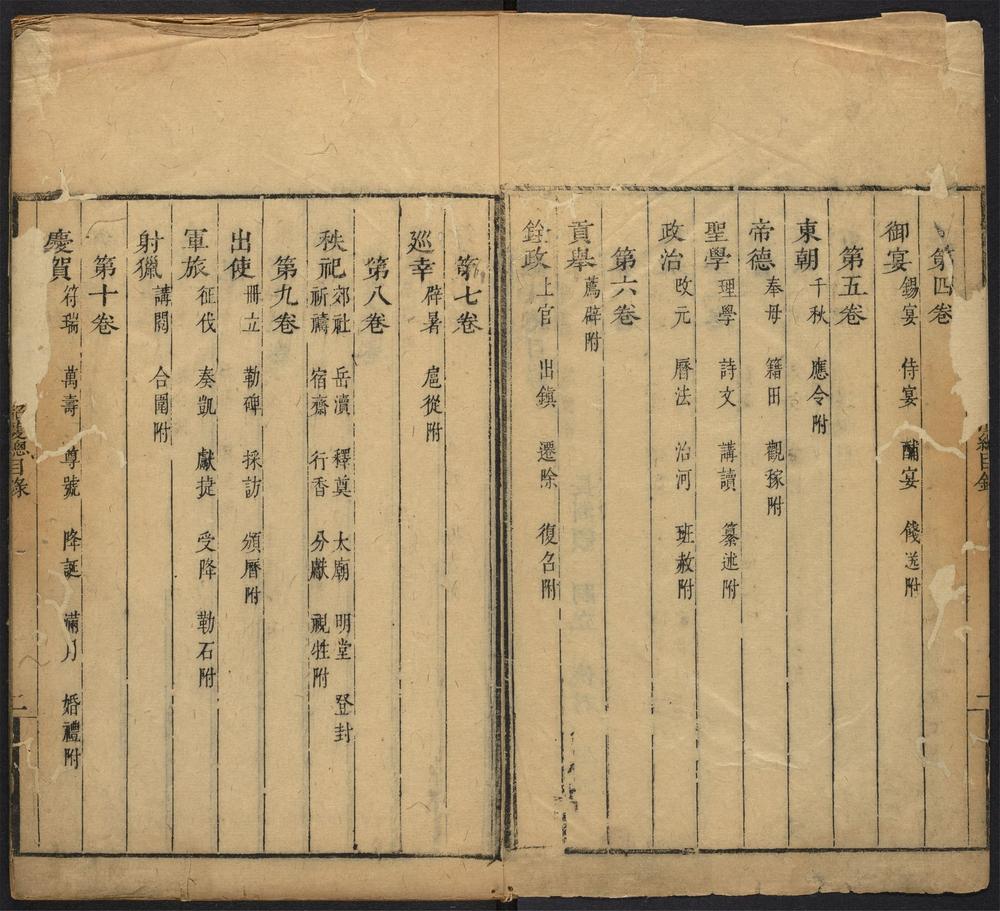 第四卷
御宴 錫宴 侍宴 酺宴 餞送附
第五卷
東朝 千秋 應令附
帝德 奉母 籍田 觀稼附
聖學 理學 詩文 講讀 纂述附
政治 改元 曆法 治河 班赦附
第六卷
貢舉 薦辟附
銓政 上官 出鎮 遷除 復名附
第七卷
巡幸 辟暑 扈從附
第八卷
秩祀 郊社 岳瀆 釋奠 太廟 明堂 登封
祈禱 宿齋 行香 分獻 視牲附
第九卷
出使 冊立 勒碑 採訪 頒曆附
軍旅 征伐 奏凱 獻捷 受降 勒石附
射獵 講閱 合圍附
第十卷
慶賀 符瑞 萬壽 尊號 降誕 滿月 婚禮附
總目錄
二